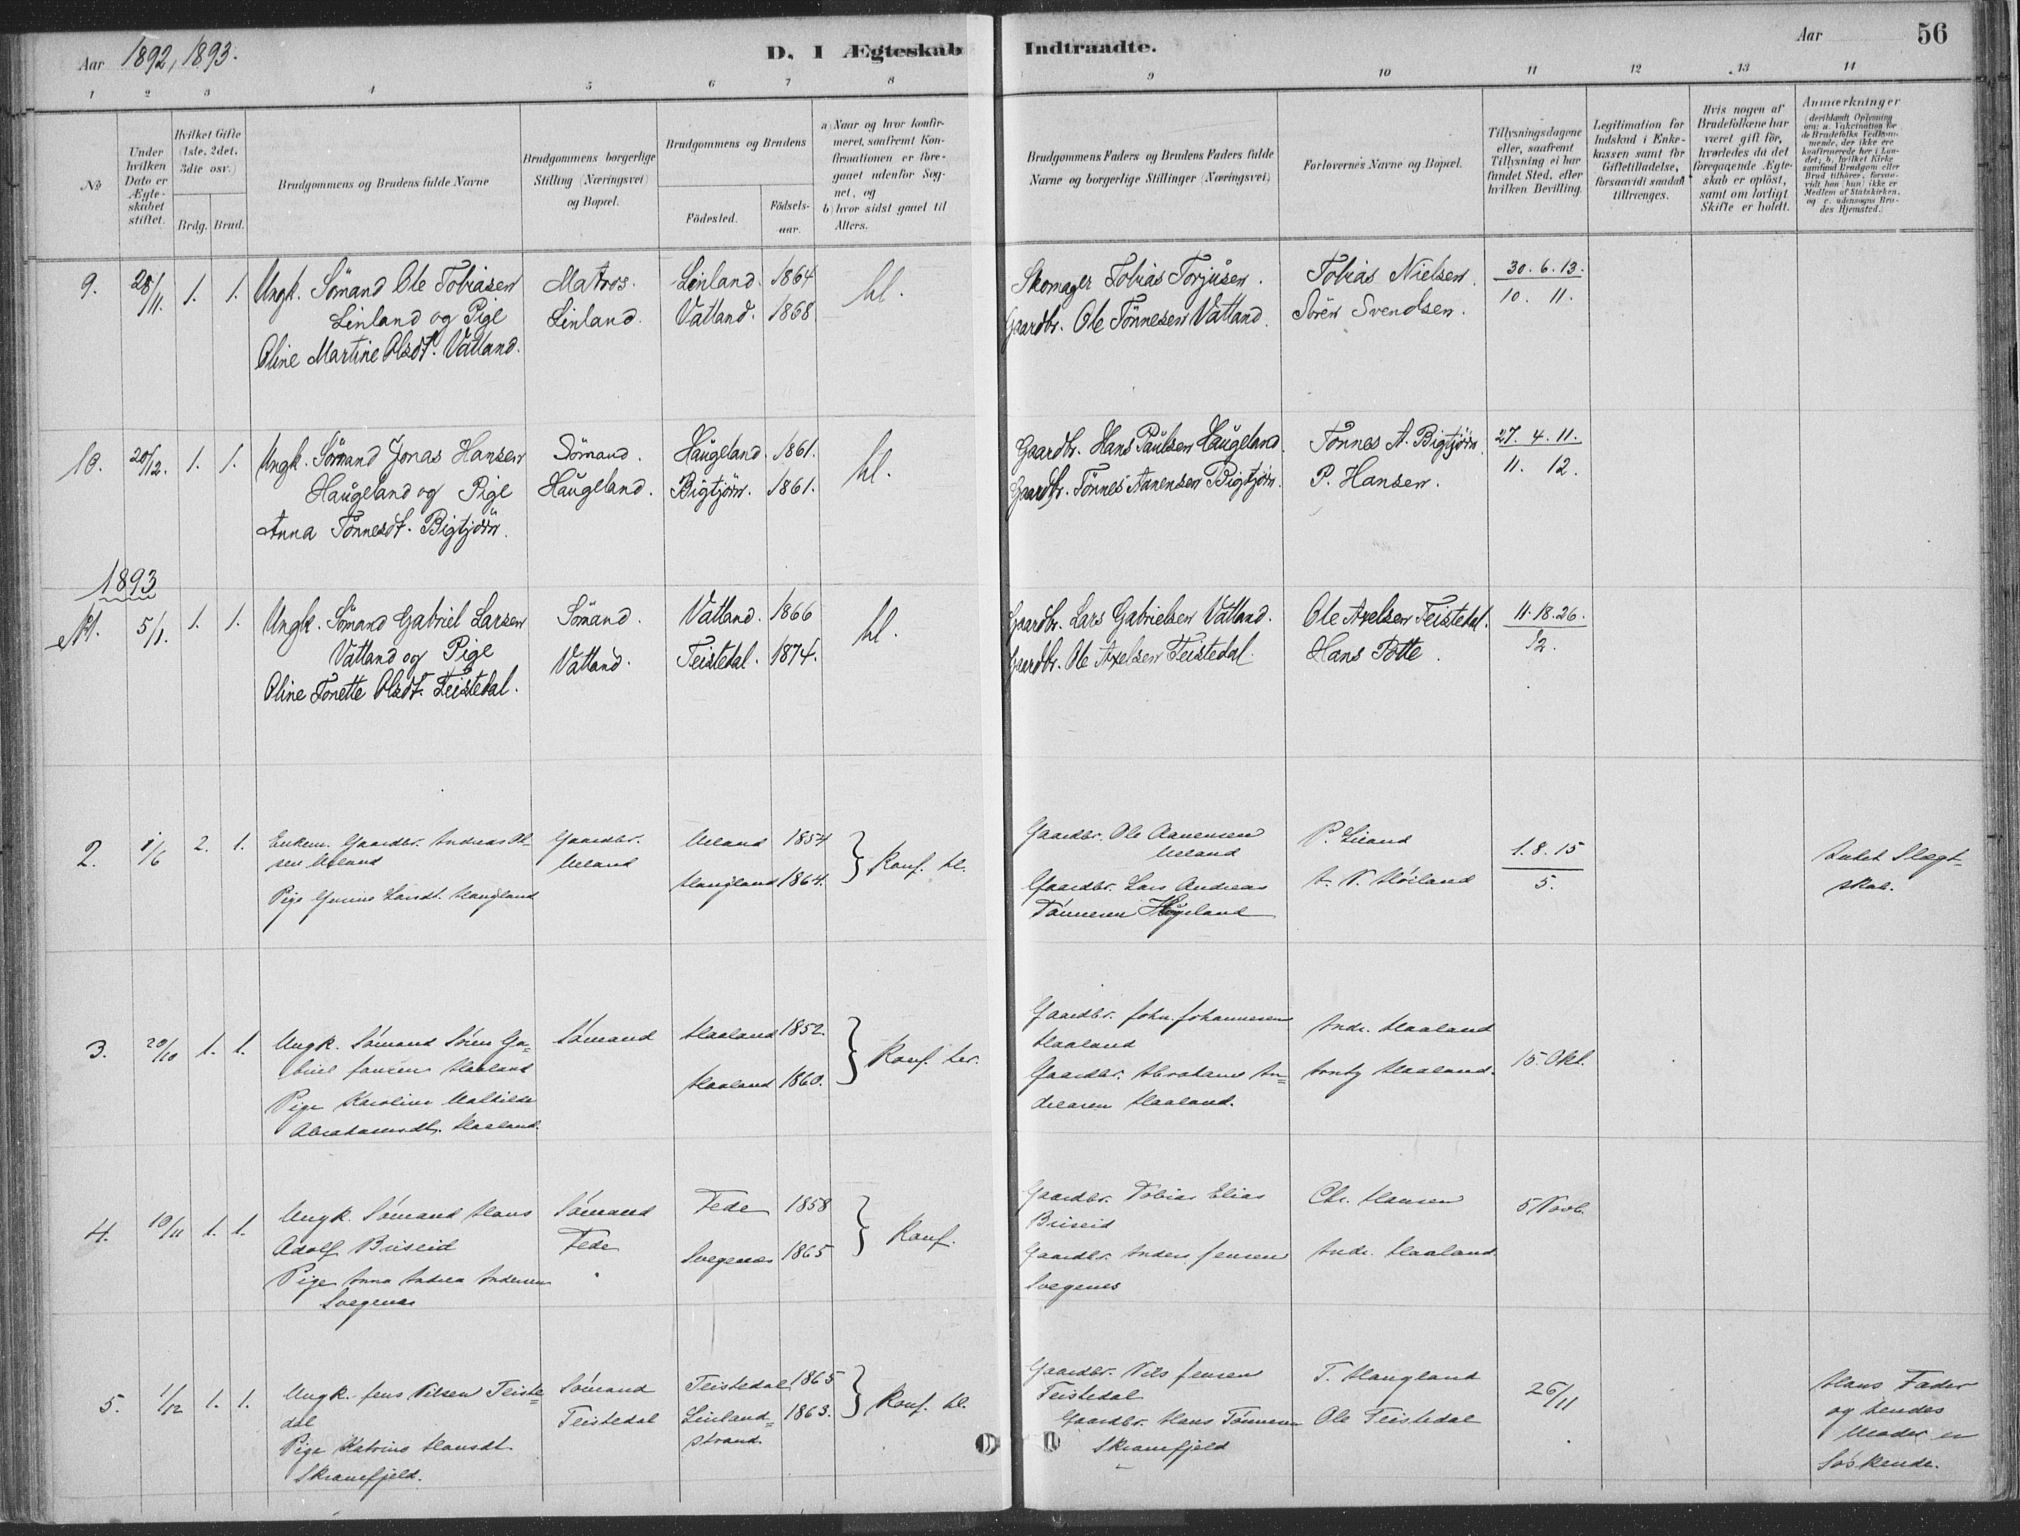 Aar 1892, 1893.
D. I Ægteskab Indtraadte.
Aar
56
1 2 3 4 5 6 7 8 9 10 11 12 13 14
No
Under hvilken Dato er Ægteskabet stiftet.
Hvilket Gifte (1ste, 2det, 3die osv.)
Brdg. Brud.
Brudgommens og Brudens fulde Navne
Brudgommens borgerlige Stilling (Næringsvei) og Bopæl.
Brudgommens og Brudens
Födested.
Födselsaar.
a) Naar og hvor konfirmeret, saafremt Konfirmationen er foregaaet udenfor Sognet, og
b) hvor sidst gaaet til Alters.
Brudgommens Faders og Brudens Faders fulde Navne og borgerlige Stillinger (Næringsvei)
Forlovernes Navne og Bopæl.
Tillysningsdagene eller, saafremt Tillysning ei har fundet Sted, efter hvilken Bevilling.
Legitimation for Indskud i Enkekassen samt for Giftetilladelse, forsaavidt saadan tiltrænges.
Hvis nogen af Brudefolkene har været gift för, hvorledes da det foregaaende Ægteskab er oplöst, samt om lovligt Skifte er holdt.
Anmærkninger
(deriblandt Oplysning om: a. Vakcination for de Brudefolks Vedkommende, der ikke ere konfirmerede her i Landet; b. hvilket Kirkesamfund Brudgom eller Brud tilhører, forsaavidt han (hun) ikke er Medlem af Statskirken, og c. udensogns Brudes Hjemsted.)
9. 28/11. 1. 1. Ungk. Sömand Ole Tobiasen Matros. Linland. 1864 hl. Skomager Tobias Torjusen. Tobias Nielsen. 30. 6. 13.
Linland og Pige Linland. Vatland. 1868 Gaardbr. Ole Tönnesen Vatland. Sören Svendsen. 10. 11.
Oline Martine Olsdt. Vatland.
10. 20/12. 1. 1. Ungk. Sömand Jonas Hansen Sömand. Haugeland. 1861. hl. Gaardbr. Hans Paulsen Haugeland. Tönnes A. Bigtjörn. 27. 4. 11.
Haugeland og Pige Haugeland. Bigtjörn. 1861. Gaardbr. Tönnes Aanensen Bigtjörn. P. Hansen. 11. 12.
Anna Tönnesdt. Bigtjörn.
1893
N1. 5/1. 1. 1. Ungk. Sömand Gabriel Larsen Sömand. Vatland. 1866 hl. Gaardbr. Lars Gabrielsen Vatland. Ole Axelsen Teistedal. 11. 18. 26.
Vatland og Pige Vatland. Teistedal. 1874. Gaardbr. Ole Axelsen Teistedal. Hans Totte. 12.
Oline Tonette Olsdt. Teistedal.
2. 1/6 2. 1. Enkem. Gaardbr. Andreas Ol- Gaardbr. Ueland 1854 Konf. hl. Gaardbr. Ole Aanensen P. Liland 1. 8. 15
sen Ueland Ueland Ueland 5. Intet Slægt-
Pige Gurine Larsdt. Haugland Haugland 1864. Gaardbr. Lars Andreas A. N. Höiland skab.
Tönnesen Haugeland
3. 20/10 1. 1. Ungk. Sömand Sören Ga- Sömand Haaland 1852. Konf. her. Gaardbr. John Johannesen Andr. Haaland
briel Jansen Haaland Haaland 15. Okt.
Pige Karoline Mathilde Haaland 1860. Gaardbr. Abraham An= Haaland.
Abrahamsdt. Haaland. dreasen Haaland.
4. 10/11 1. 1. Ungk. Sömand Hans Sömand Fede 1858 Konf. Gaardbr. Tobias Elias Chr. Hansen 5 Novb.
Adolf Briseid Fede Briseid
Pige Anna Andrea Andersen Svegenæs 1865 Gaardbr. Anders Jensen Andr. Haaland
Svegenæs Svegenes
5. 1/12 1. 1. Ungk. Jens Nilsen Teiste= Sömand Teistedal 1865 Konf. hl. Gaardbr. Nils Jensen T. Haugland 26/11 Hans Fader
dal Teistedal Linland= 1863. Teistedal og hendes
Pige Katrine Hansdt. strand. Gaardbr. Hans Tönnesen Ole Teistedal Moder er
Skranefjeld. Skranefjeld Söskende.